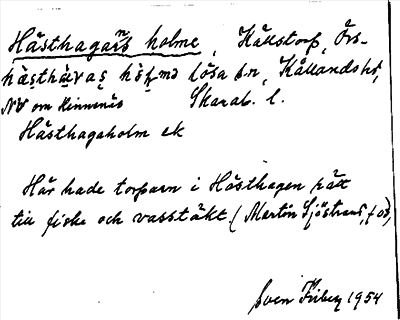 Hästhagans holme, Källstorp, Örs-
hæsthavas hòlmə lösa sn, Kållands hd,
NV om Kinnenäs Skarab. l.
Hästhagaholm ek
Här hade torparn i Hästhagen rätt
till fiske och vasstäkt (Martin Sjöstrand, f 03)
Sven Friberg 1954